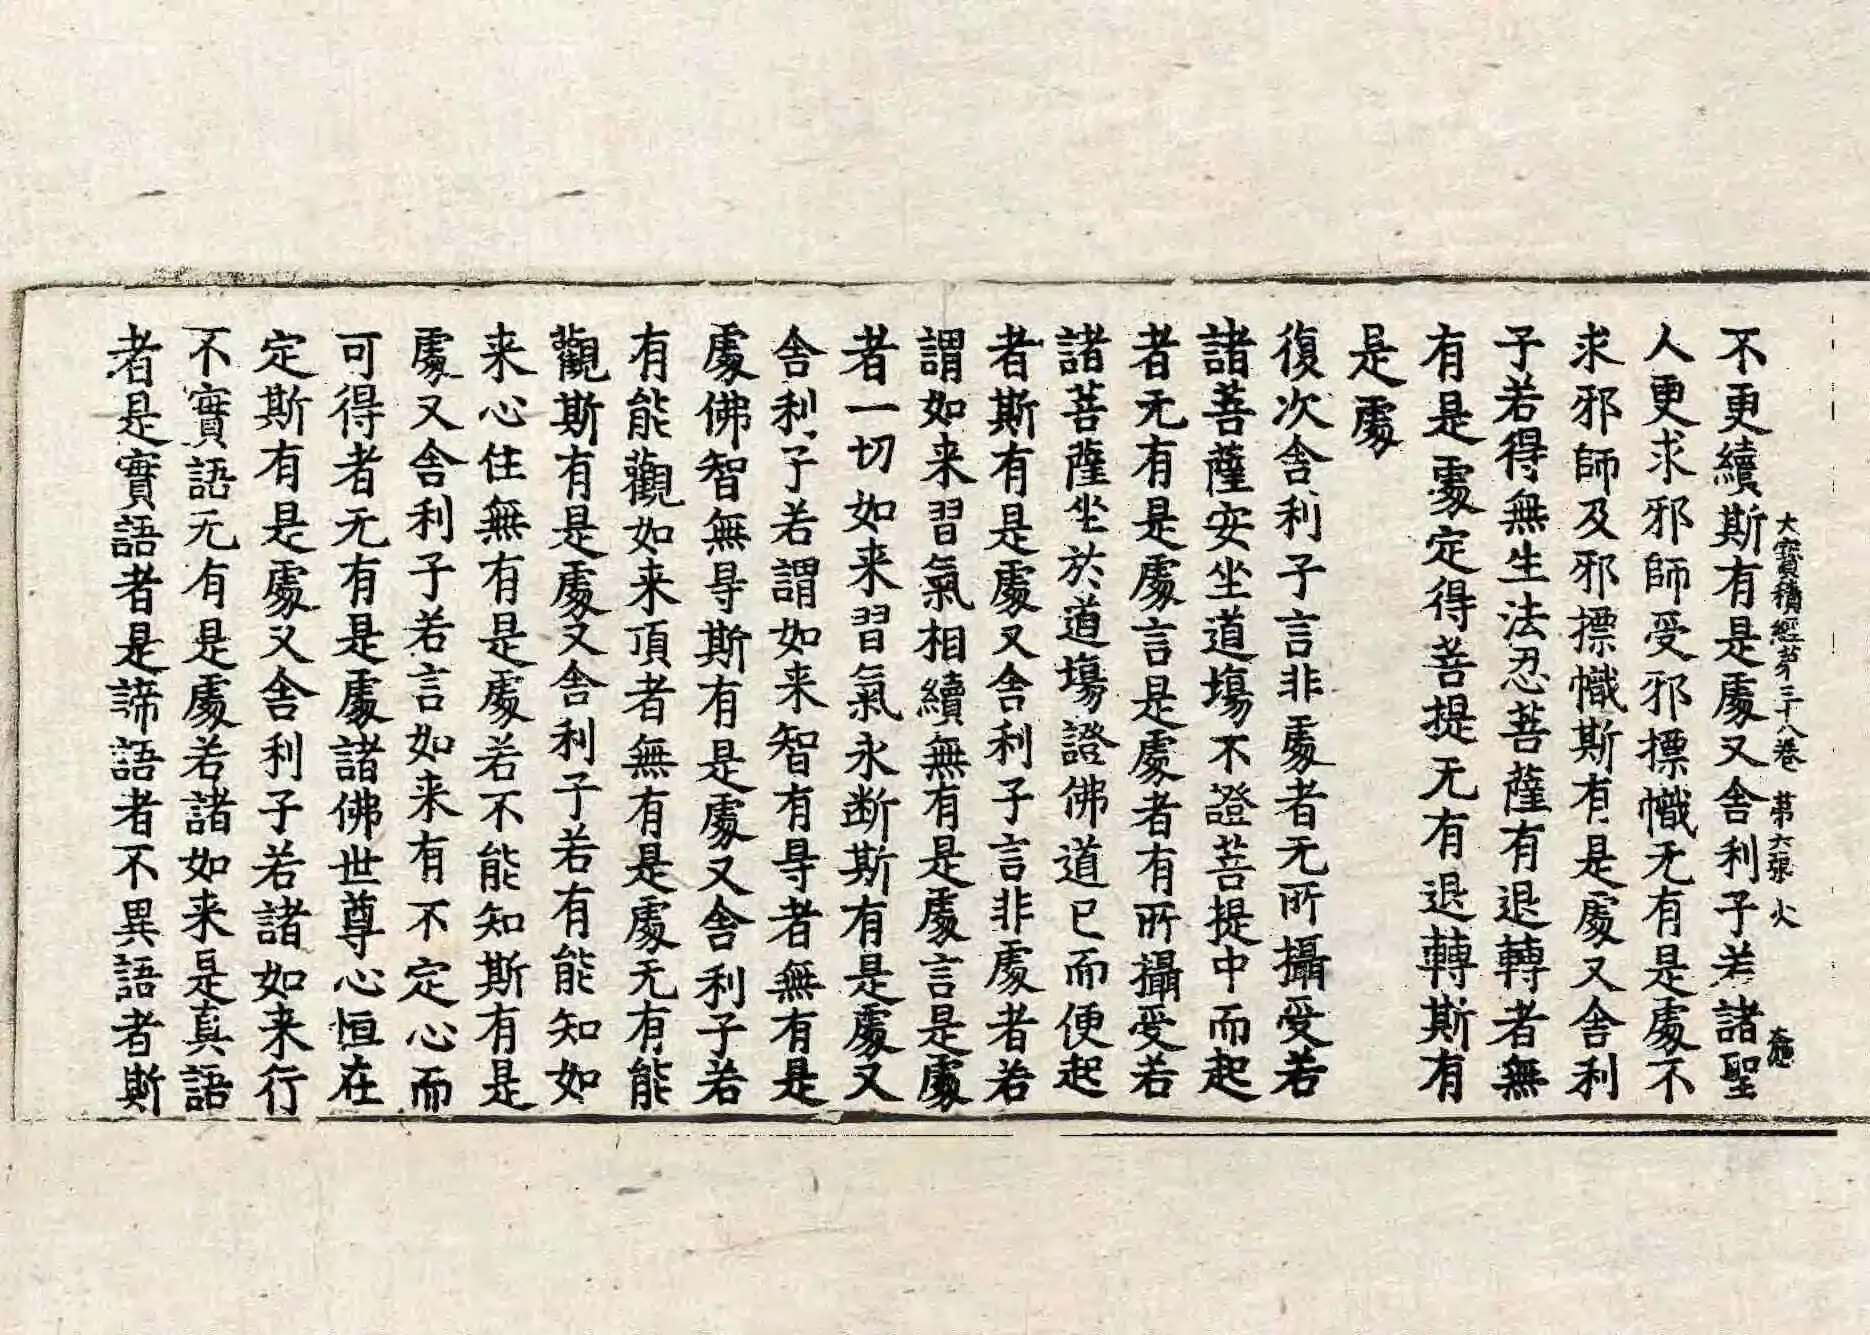 大寶積經第三十八卷 第六張 火
不更續斯有是處又舍利子若諸聖
人更求邪師受邪摽幟无有是處不
求邪師及邪摽幟斯有是處又舍利
子若得無生法忍菩薩有退轉者無
有是處定得菩提无有退轉斯有
是處
復次舍利子言非處者无所攝受若
諸菩薩安坐道場不證菩提中而起
者无有是處言是處者有所攝受若
諸菩薩坐於道場證佛道已而便起
者斯有是處又舍利子言非處者若
謂如来習氣相續無有是處言是處
者一切如来習氣永断斯有是處又
舍利子若謂如来智有㝵者無有是
處佛智無㝵斯有是處又舍利子若
有能觀如来頂者無有是處无有能
觀斯有是處又舍利子若有能知如
来心住無有是處若不能知斯有是
處又舍利子若言如来有不定心而
可得者无有是處諸佛世尊心恒在
定斯有是處又舍利子若諸如来行
不實語无有是處若諸如来是真語
者是實語者是諦語者不異語者斯